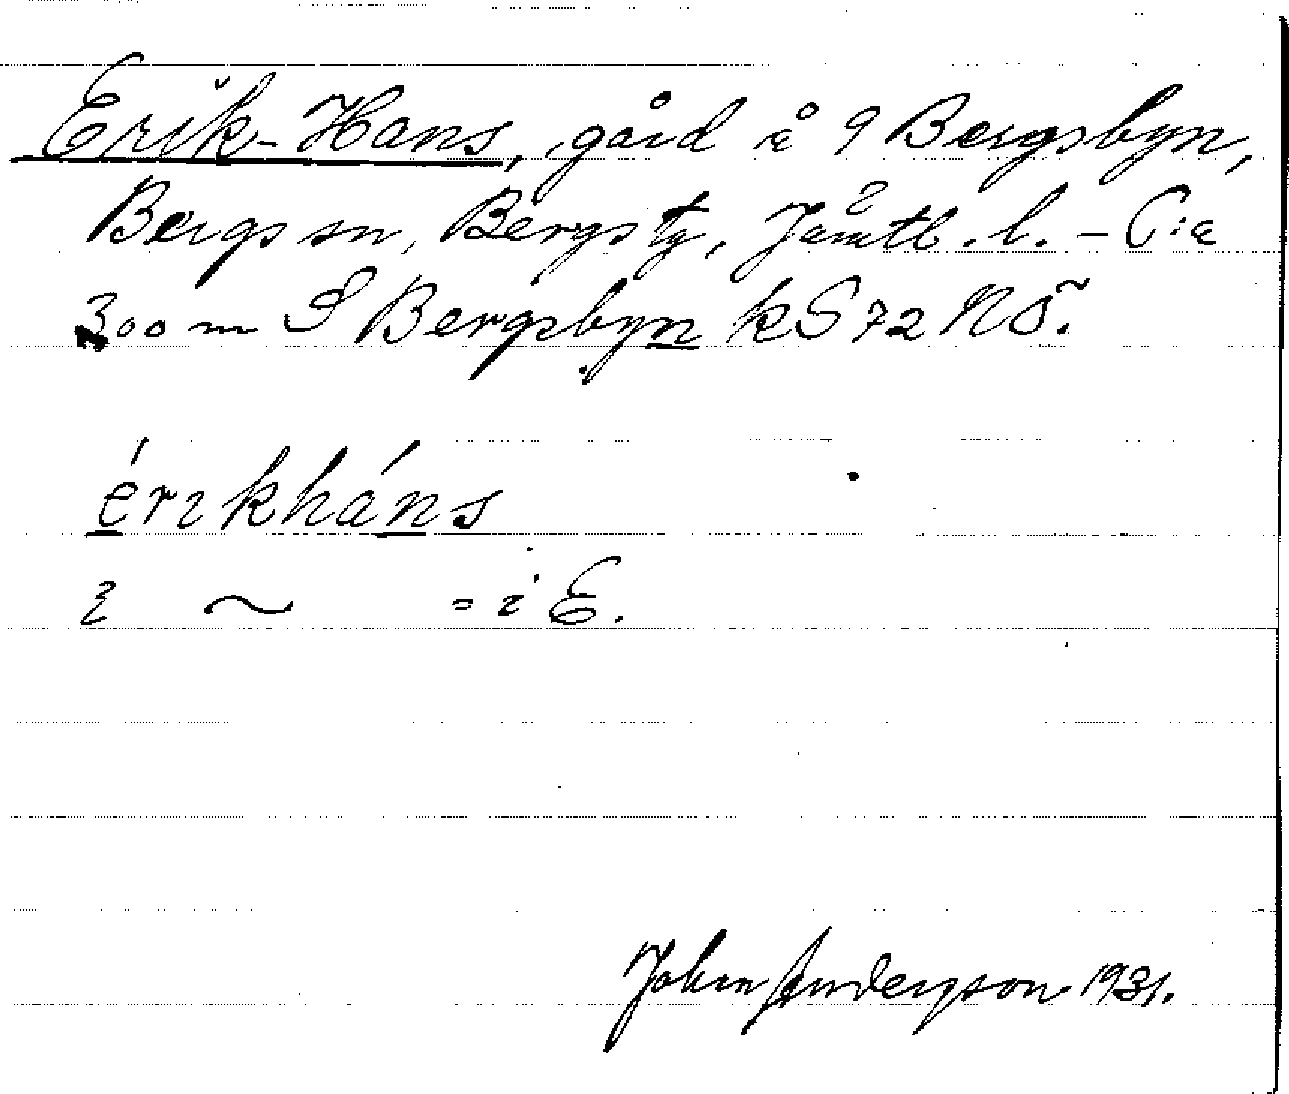 Erik-Hans, gård å 9 Bergsbyn,
Bergs sn, Bergs tg, Jämtl. l. - C:a
300 m S Bergsbyn kS72NÖ.
érıkháns
ı ~ = i E.
Johan Anderson 1931.